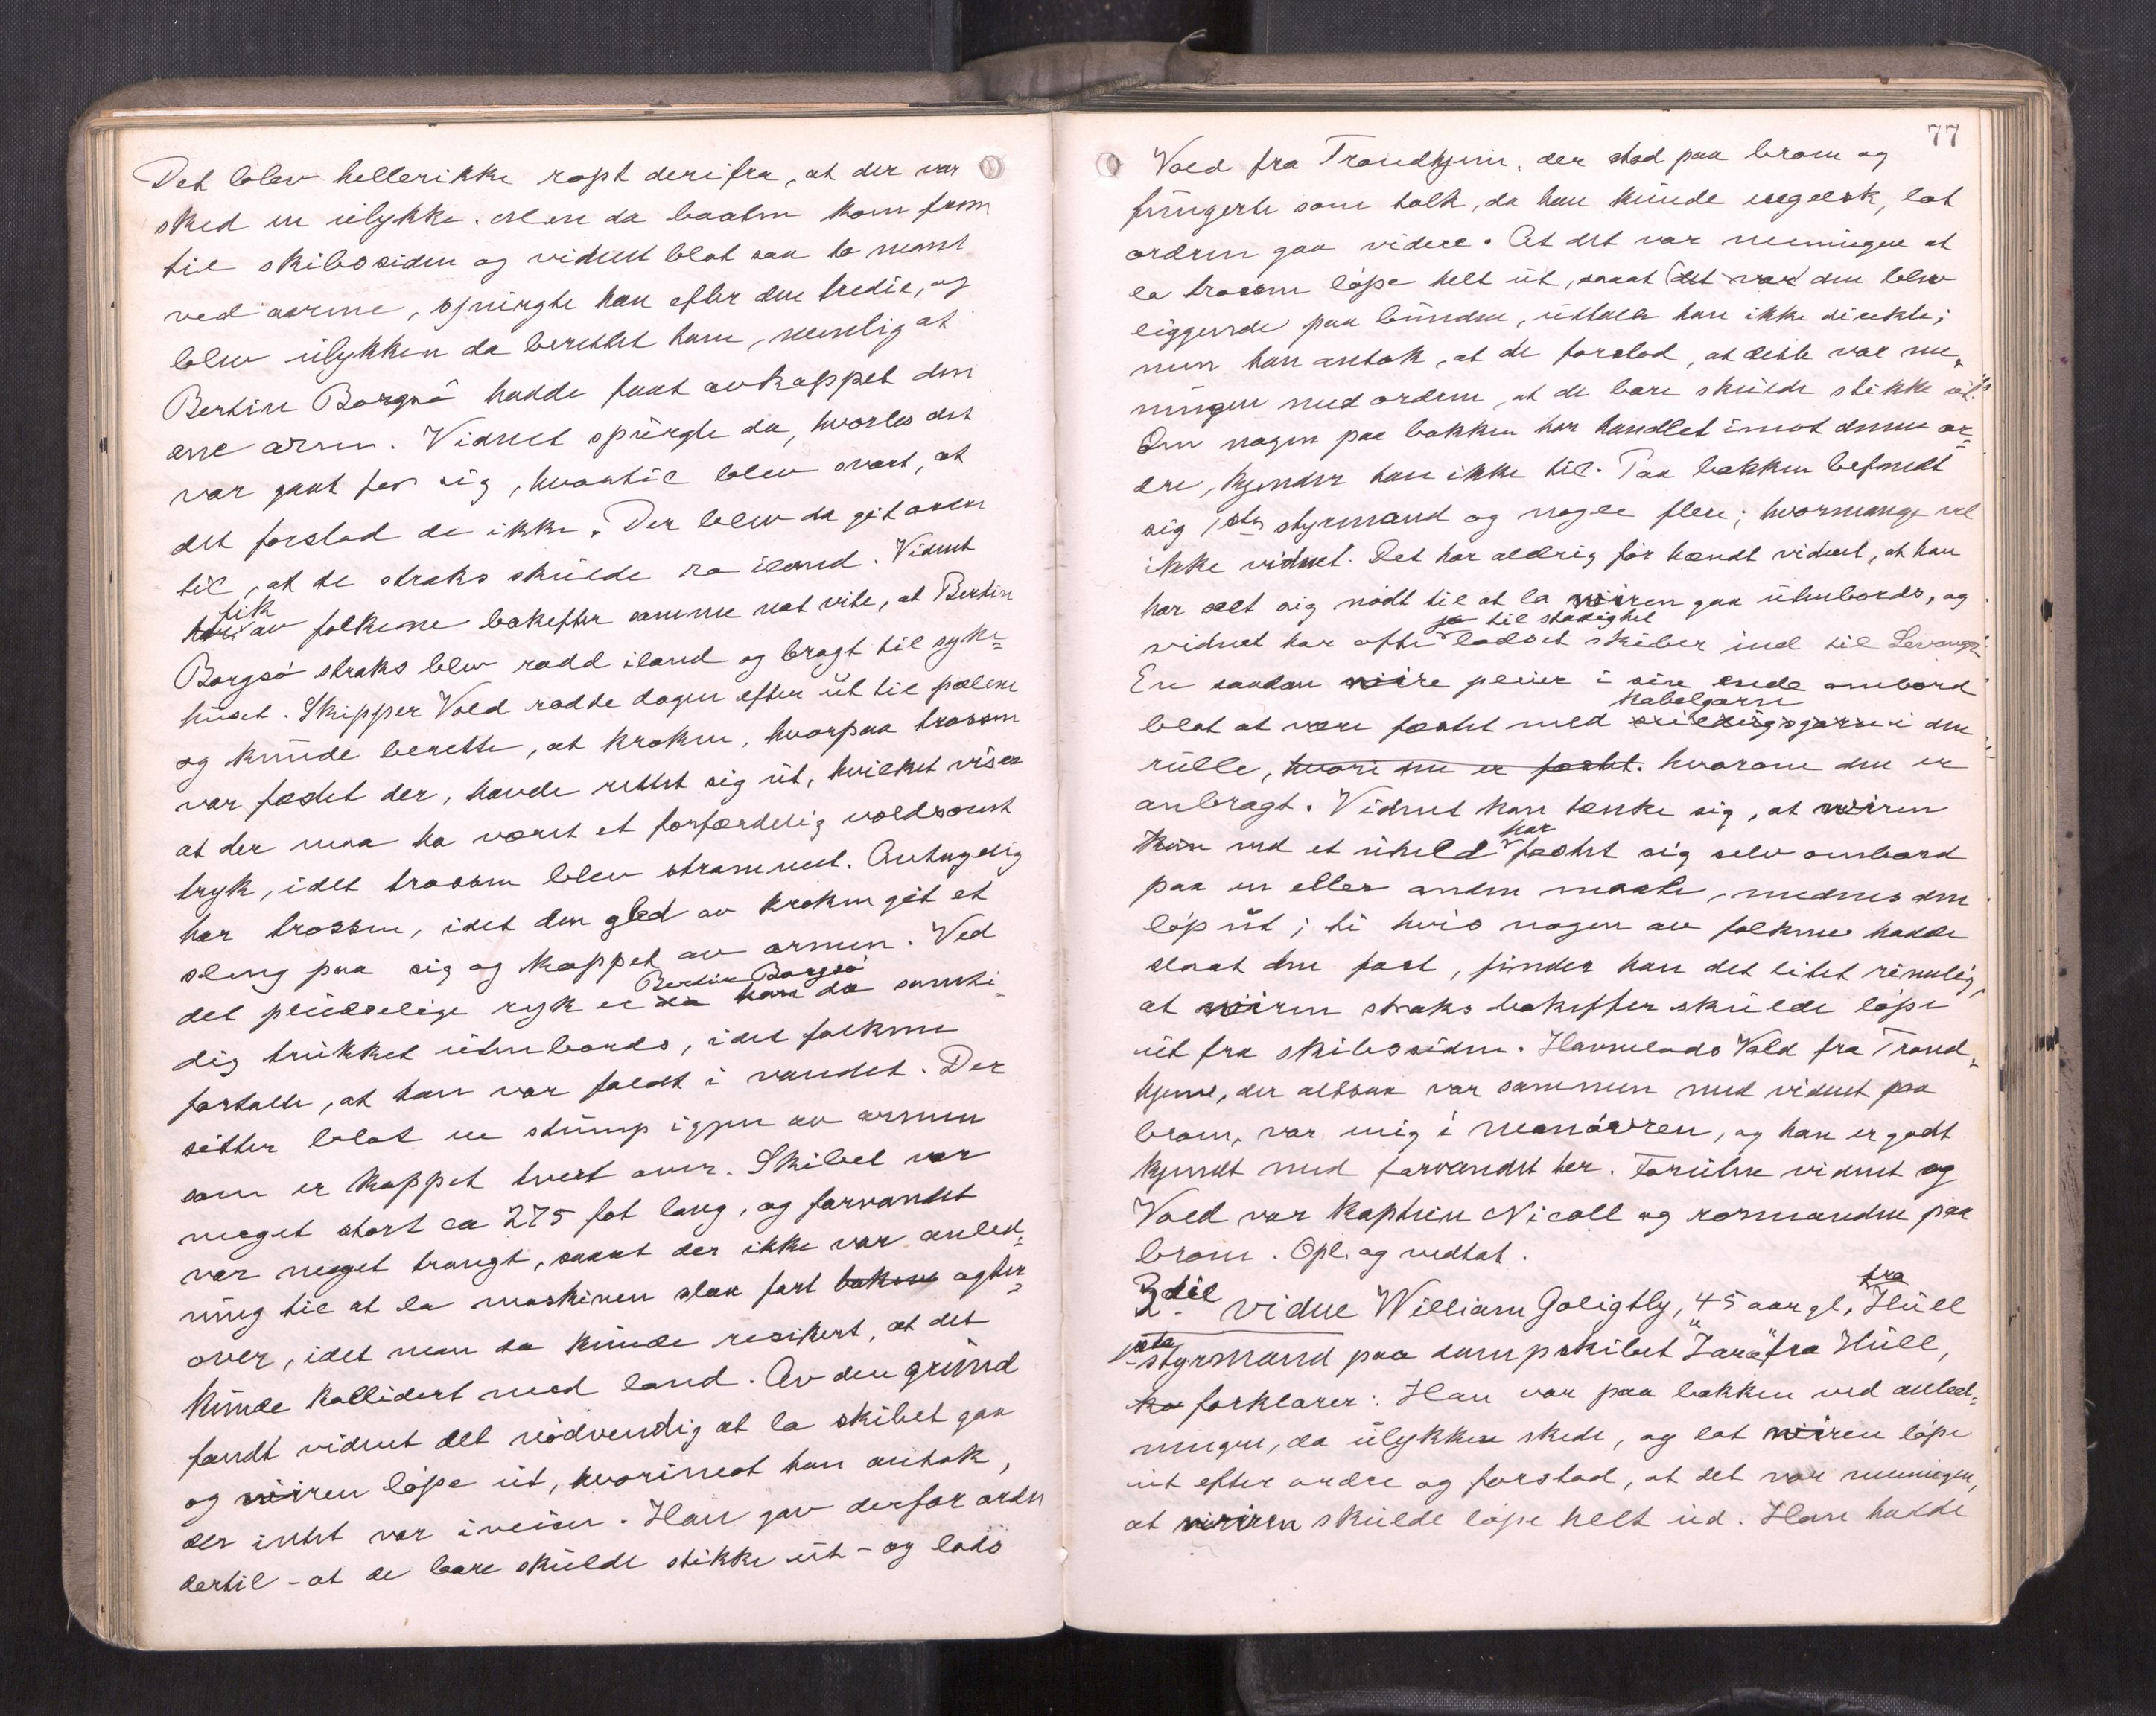 Det blev hellerikke ropt derifra, at der var
sked en ulykke. Men da baaten kom frem
til skibssiden og vidnet blot saa to mand
ved aarene, spurgte han efter den tredie, og
blev ulykken da berettet ham, nemlig at
Bertin Borgsö hadde faat avkappet den
ene arm. Vidnet spurgte da, hvorles det
var gaat for sig, hvortil blev svart, at
det forstod de ikke. Der blev da git ordre
til, at de straks skulde ro iland. Vidnet
fik av folkene bakefter samme nat vite, at Bertin
Borgsö straks blev rodd iland og bragt til syke-
huset. Skipper Vold rodde dagen efter ut til pælene
og kunde berette, at kroken, hvorpaa trossen
var fæstet der, havde rettet sig ut, hvilket viser
at der maa ha været et forfærdelig voldsomt
tryk, idet trossen blev strammet. Antagelig
har trossen, idet den gled av kroken git et
sleng paa sig og kappet av armen. Ved
det pludselige ryk er da Bertin Borgsö samti-
dig trukket utenbords, idet folkene
fortalte, at han var faldt i vandet. Der
sitter blot en stump igjen av armen
som er kappet tvert over. Skibet var
meget stort ca 275 fot lang, og farvandet
var meget trangt, saaat der ikke var anled-
ning til at la maskinen slaa fart bakover agter-
over, idet man da kunde resikert, at det
kunde kollidert med land. Av den grund
fandt vidnet det nödvendig at la skibet gaa
og wiren löpe ut, hvorimot han antok,
der intet var iveien. Han gav derfor ordre
dertil - at de bare skulde stikke ut - og lods
77
Vold fra Trondhjem, der stod paa broen og
fungerte som tolk, da han kunde engelsk, lot
ordren gaa videre. At det var meningen at
la trossen löpe helt ut, saaat (det var) den blev
liggende paa bunden, uttalte han ikke direkte;
men han antok, at de forstod, at dette var me-
ningen med ordren, at de bare skulde stikke ut.
Om nogen paa bakken har handlet imot denne or-
dre, kjender han ikke til. Paa bakken befandt
sig 1ste styrmand og nogle flere; hvormange vet
ikke vidnet. Det har aldrig för hændt vidnet, at han
har set sig nödt til at la wiren gaa utenbords, og
vidnet har ofte ja til stadighet lodset skiber ind til Levanger.
En saadan wire pleier i sin ende ombord
blot at være fæstet med seildugsgarn kabelgarn i den
rulle, hvori den er fæstet. hvorom den er
anbragt. Vidnet kan tænke sig, at wiren
kun ved et uheld har fæstet sig selv ombord
paa en eller anden maate, medens den
löp ut; ti hvis nogen av folkene hadde
slaat den fast, finder han det litet rimelig,
at wiren straks bakefter skulde löpe
ut fra skibssiden. Havnelods Vold fra Trond-
hjem, der altsaa var sammen med vidnet paa
broen, var enig i manövren, og han er godt
kjendt med farvandet her. Foruten vidnet og
Vold var Kaptein Nicoll og rormanden paa
broen. Opl. og vedtat.
3die vidne William Goligtly, 45 aar gl, fra Hull
1ste styrmand paa dampskibet "Zara" fra Hull,
ko forklarer: Han var paa bakken ved anled-
ningen, da ulykken skede, og lot wiren löpe
ut efter ordre og forstod, at det var meningen,
at wiren skulde löpe helt ud. Han hadde